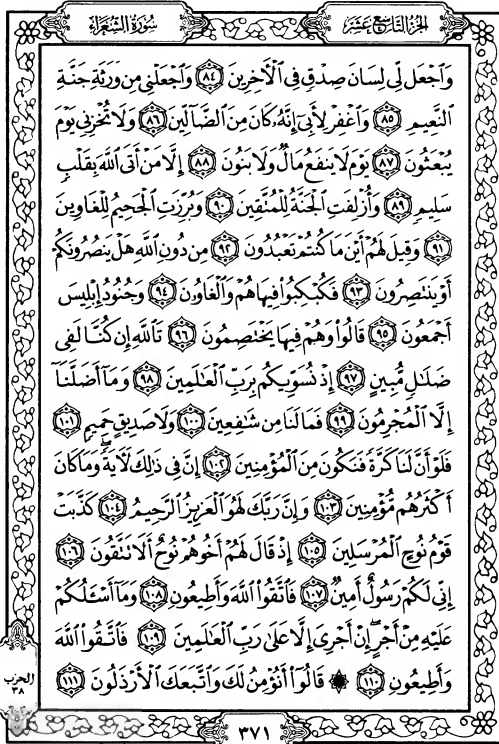 سُورَةُ الشُّعَرَاءِ
الجُزءُ التَّاسِعَ عَشَرَ
وَٱجۡعَل لِّي لِسَانَ صِدۡقٖ فِي ٱلۡأٓخِرِينَ ٨٤ وَٱجۡعَلۡنِي مِن وَرَثَةِ جَنَّةِ
ٱلنَّعِيمِ ٨٥ وَٱغۡفِرۡ لِأَبِيٓ إِنَّهُۥ كَانَ مِنَ ٱلضَّآلِّينَ ٨٦ وَلَا تُخۡزِنِي يَوۡمَ
يُبۡعَثُونَ ٨٧ يَوۡمَ لَا يَنفَعُ مَالٞ وَلَا بَنُونَ ٨٨ إِلَّا مَنۡ أَتَى ٱللَّهَ بِقَلۡبٖ
سَلِيمٖ ٨٩ وَأُزۡلِفَتِ ٱلۡجَنَّةُ لِلۡمُتَّقِينَ ٩٠ وَبُرِّزَتِ ٱلۡجَحِيمُ لِلۡغَاوِينَ
٩١ وَقِيلَ لَهُمۡ أَيۡنَ مَا كُنتُمۡ تَعۡبُدُونَ ٩٢ مِن دُونِ ٱللَّهِ هَلۡ يَنصُرُونَكُمۡ
أَوۡ يَنتَصِرُونَ ٩٣ فَكُبۡكِبُواْ فِيهَا هُمۡ وَٱلۡغَاوُۥنَ ٩٤ وَجُنُودُ إِبۡلِيسَ
أَجۡمَعُونَ ٩٥ قَالُواْ وَهُمۡ فِيهَا يَخۡتَصِمُونَ ٩٦ تَٱللَّهِ إِن كُنَّا لَفِي
ضَلَٰلٖ مُّبِينٍ ٩٧ إِذۡ نُسَوِّيكُم بِرَبِّ ٱلۡعَٰلَمِينَ ٩٨ وَمَآ أَضَلَّنَآ
إِلَّا ٱلۡمُجۡرِمُونَ ٩٩ فَمَا لَنَا مِن شَٰفِعِينَ ١٠٠ وَلَا صَدِيقٍ حَمِيمٖ ١٠١
فَلَوۡ أَنَّ لَنَا كَرَّةٗ فَنَكُونَ مِنَ ٱلۡمُؤۡمِنِينَ ١٠٢ إِنَّ فِي ذَٰلِكَ لَأٓيَةٗۖ وَمَا كَانَ
أَكۡثَرُهُم مُّؤۡمِنِينَ ١٠٣ وَإِنَّ رَبَّكَ لَهُوَ ٱلۡعَزِيزُ ٱلرَّحِيمُ ١٠٤ كَذَّبَتۡ
قَوۡمُ نُوحٍ ٱلۡمُرۡسَلِينَ ١٠٥ إِذۡ قَالَ لَهُمۡ أَخُوهُمۡ نُوحٌ أَلَا تَتَّقُونَ ١٠٦
إِنِّي لَكُمۡ رَسُولٌ أَمِينٞ ١٠٧ فَٱتَّقُواْ ٱللَّهَ وَأَطِيعُونِ ١٠٨ وَمَآ أَسۡـَٔلُكُمۡ
عَلَيۡهِ مِنۡ أَجۡرٍۖ إِنۡ أَجۡرِيَ إِلَّا عَلَىٰ رَبِّ ٱلۡعَٰلَمِينَ ١٠٩ فَٱتَّقُواْ ٱللَّهَ
وَأَطِيعُونِ ١١٠ ۞ قَالُوٓاْ أَنُؤۡمِنُ لَكَ وَٱتَّبَعَكَ ٱلۡأَرۡذَلُونَ ١١١
الحزب
٣٨
٣٧١